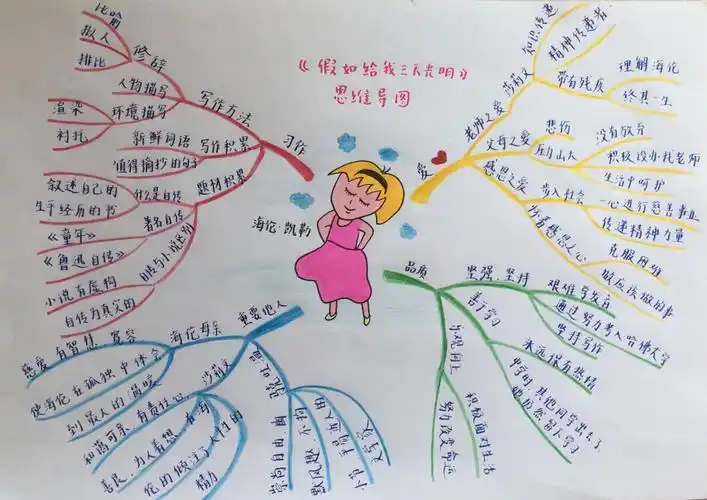 《假如给我三天光明》
思维导图
海伦·凯勒
习作
写作方法
修辞
比喻
拟人
排比
人物描写
环境描写
渲染
衬托
写作积累
新鲜词语
值得摘抄的句子
题材积累
什么是自传
叙述自己的
生平经历的书
著名自传
《童年》
《鲁迅自传》
自传与小说区别
小说有虚构
自传为真实的
爱
老师之爱
莎莉文
知识传递
精神传递者
带有残疾
理解海伦
终其一生
父母之爱
悲伤
压力山大
没有放弃
积极设办找老师
生活中呵护
感恩之爱
步入社会
一心进行慈善事业
传递精神力量
怀着感恩之心
克服困难
做应该做的事
品质
坚强、坚持
艰难学发声
通过努力考入哈佛大学
坚持写作
善于学习
永远保有热情
中学时其他同学出去了
她仍然留下学习
乐观向上
积极面对生活
努力改变命运
重要他人
海伦母亲
慈爱、有智慧、宽容
使海伦在孤独中体会
到最大的温暖
莎莉文
和蔼可亲、有责任心
善良、为人着想
马克·吐温
崇尚自由
幽默风趣